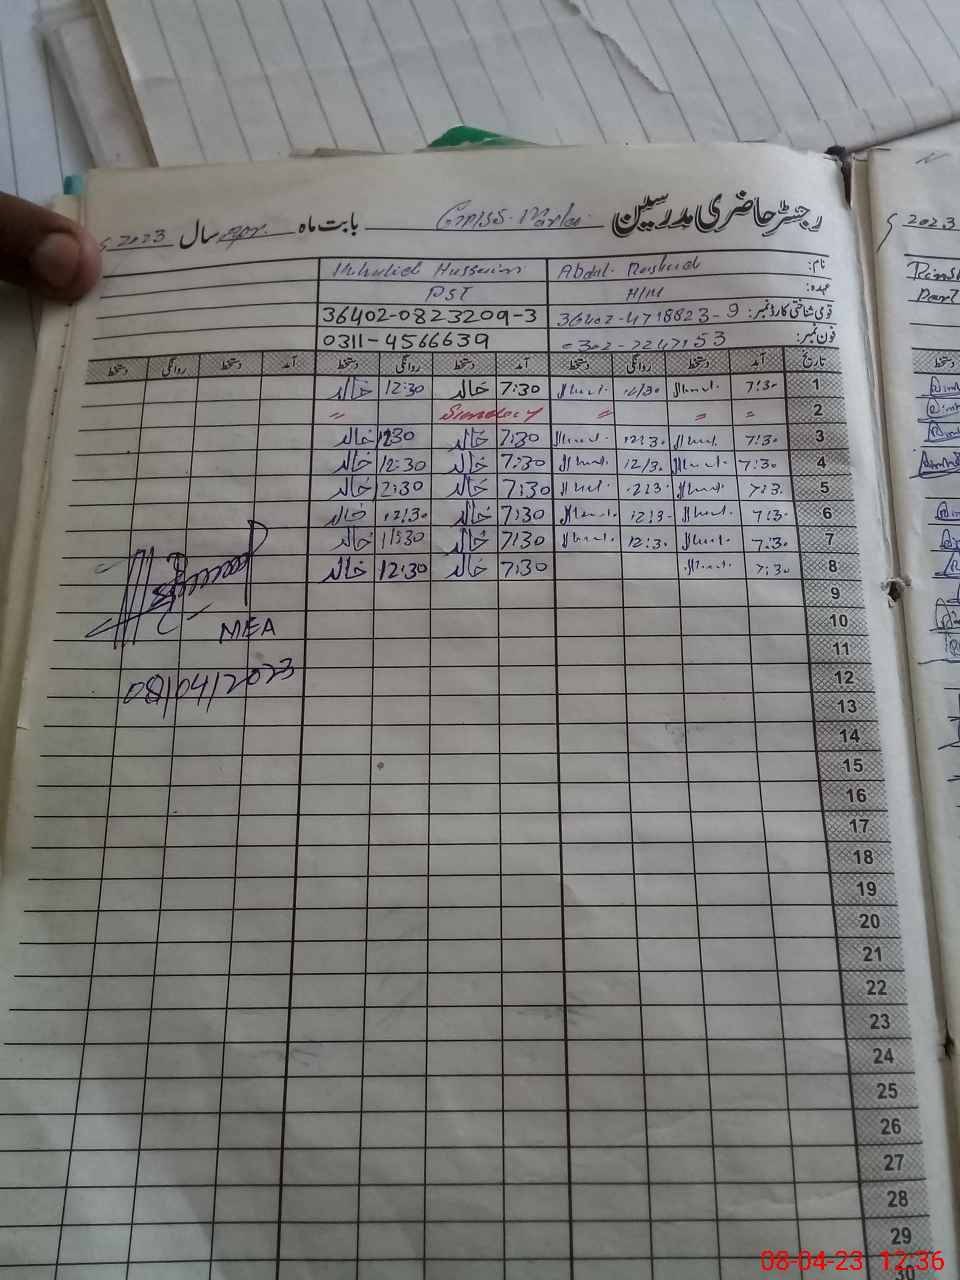 رجسٹر حاضری مدرسین بابت ماہ Apr. سال 2023
نام: Abdul Rashid Khalid Hussain
عہدہ: H/M PST
قومی شناختی کارڈ نمبر: 36402-4718823-9 36402-0823209-3
فون نمبر: 0302-7247153 0311-4566639
تاریخ آمد دستخط روانگی دستخط آمد دستخط روانگی دستخط آمد دستخط روانگی دستخط
1 7:30 12/30 7:30 خالد 12:30 خالد
2 〃 〃 〃 Sunday 〃
3 7:30 12:30 7:30 خالد 12:30 خالد
4 7:30 12/30 7:30 خالد 12:30 خالد
5 7:3. 12:3. 7:30 خالد 12:30 خالد
6 7:30 12:3. 7:30 خالد 12:30 خالد
7 7:30 12:3. 7:30 خالد 11:30 خالد
8 7:30 7:30 خالد 12:30 خالد
9
10
MEA
11
12
08/04/2023
13
14
15
16
17
18
19
20
21
22
23
24
25
26
27
28
29
30
2023
08-04-23 12:36